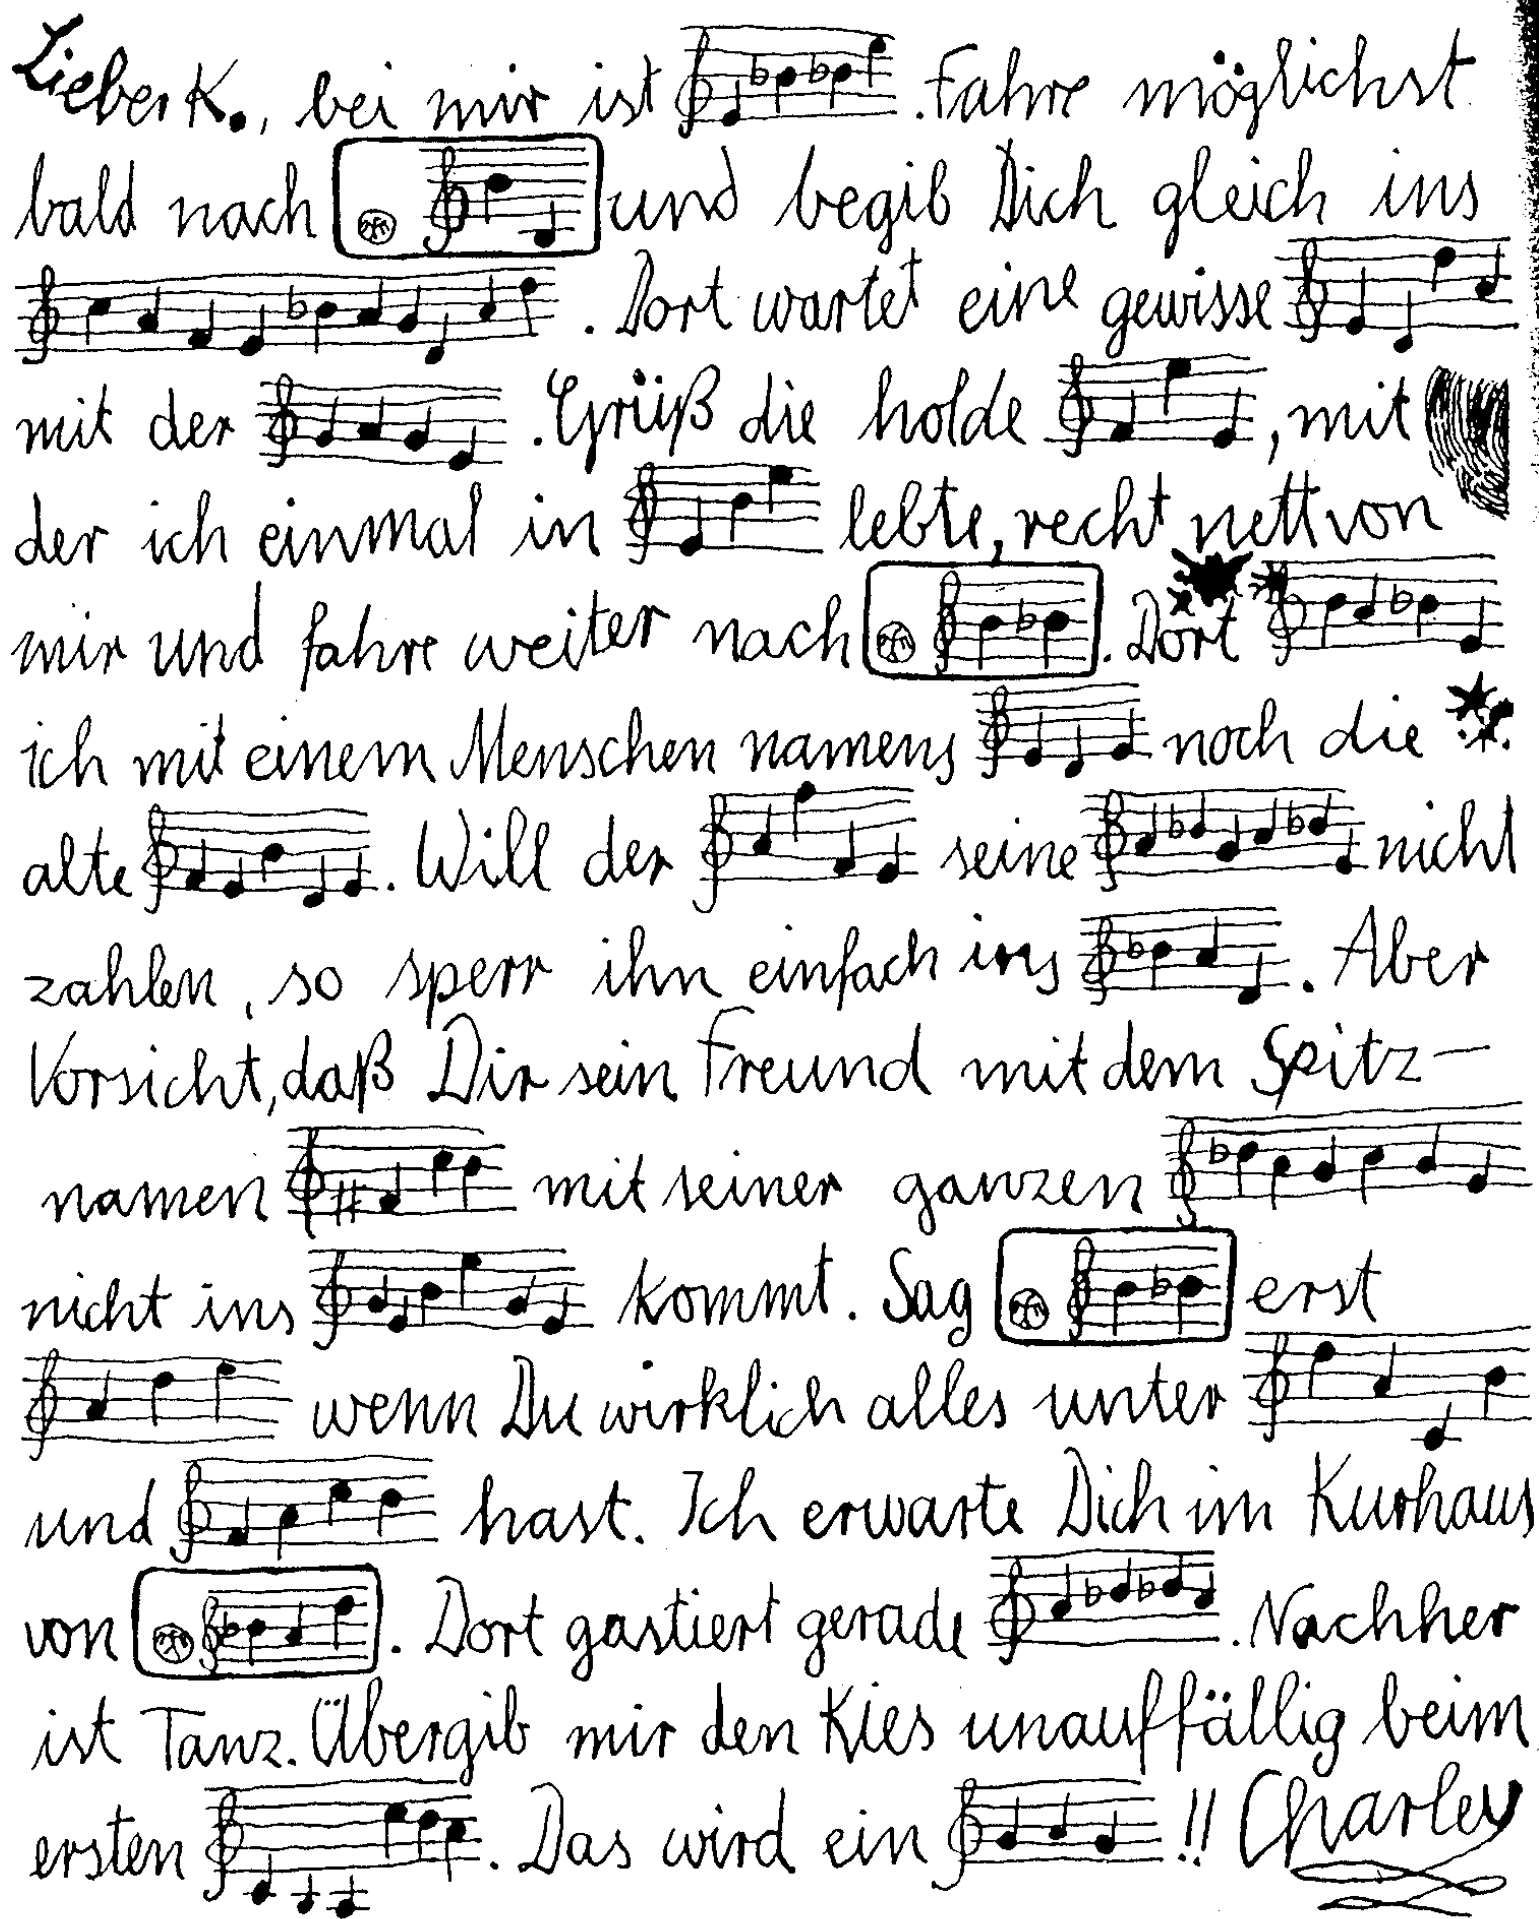 Lieber K., bei mir ist . Fahre möglichst
bald nach und begib Dich gleich ins
. Dort wartet eine gewisse
mit der . Grüß die holde , mit
der ich einmal in lebte, recht nett von
mir und fahre weiter nach . Dort
ich mit einem Menschen namens noch die
alte . Will der seine nicht
zahlen, so sperr ihn einfach ins . Aber
Vorsicht, daß Dir sein Freund mit dem Spitz-
namen mit seiner ganzen
nicht ins kommt. Sag erst
wenn Du wirklich alles unter
und hast. Ich erwarte Dich im Kurhaus
von . Dort gastiert gerade . Nachher
ist Tanz. Übergib mir den Kies unauffällig beim
ersten . Das wird ein !! Charley